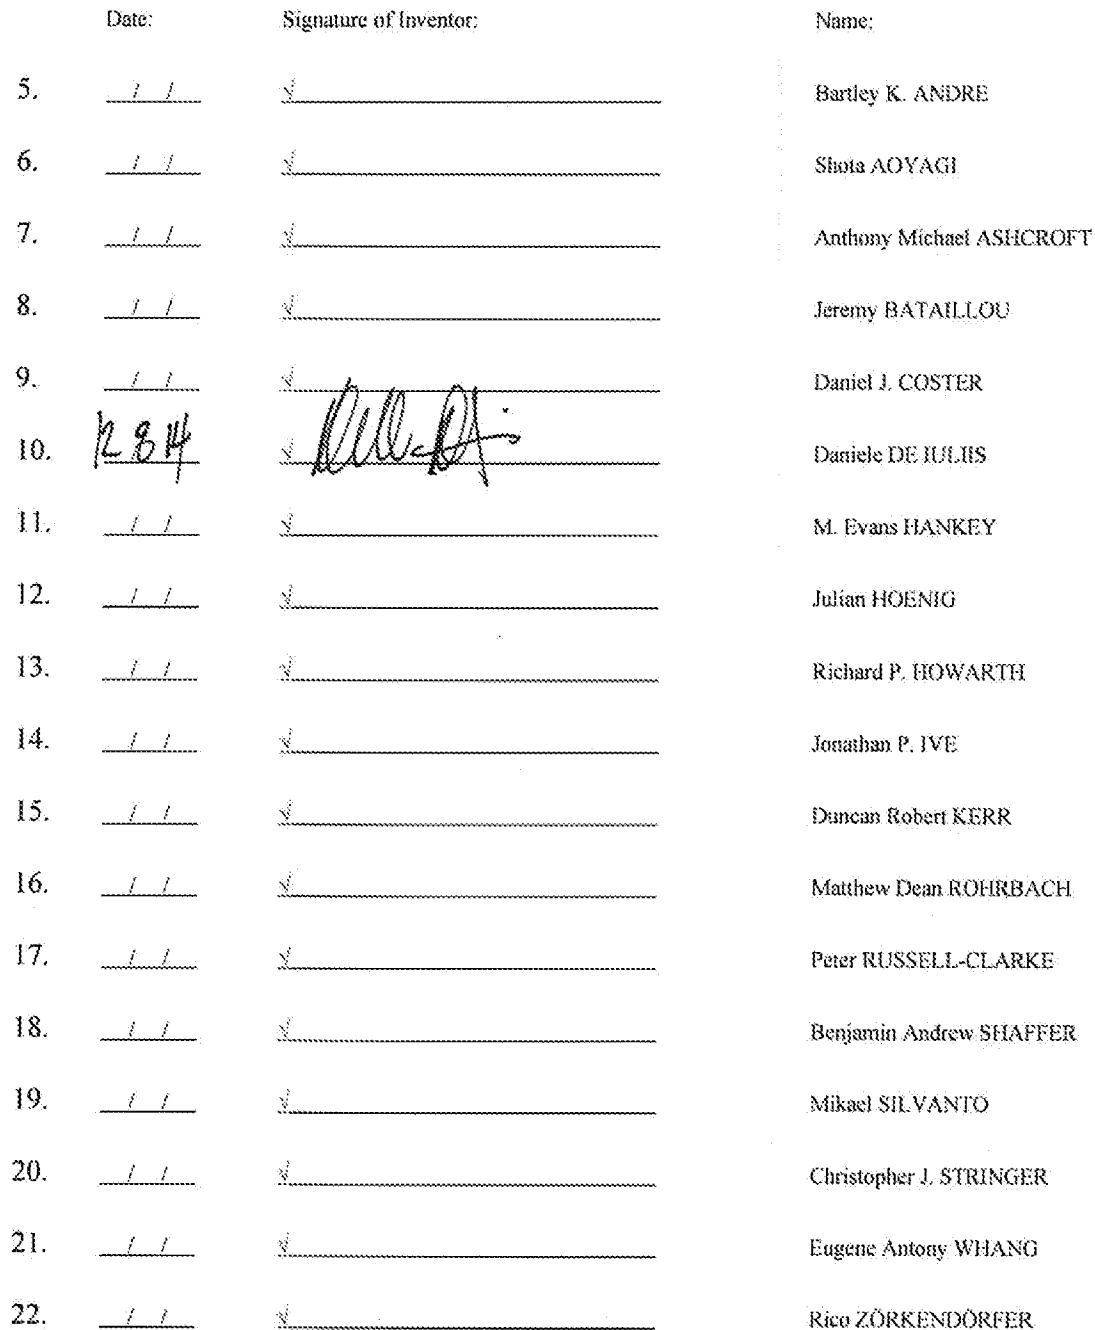 Date: Signature of Inventor: Name:
5. / / √ Bartley K. ANDRE
6. / / √ Shota AOYAGI
7. / / √ Anthony Michael ASHCROFT
8. / / √ Jeremy BATAILLOU
9. / / √ Daniel J. COSTER
10. 12 8 14 √ Daniele DE IULIIS
11. / / √ M. Evans HANKEY
12. / / √ Julian HOENIG
13. / / √ Richard P. HOWARTH
14. / / √ Jonathan P. IVE
15. / / √ Duncan Robert KERR
16. / / √ Matthew Dean ROHRBACH
17. / / √ Peter RUSSELL-CLARKE
18. / / √ Benjamin Andrew SHAFFER
19. / / √ Mikael SILVANTO
20. / / √ Christopher J. STRINGER
21. / / √ Eugene Antony WHANG
22. / / √ Rico ZÖRKENDÖRFER